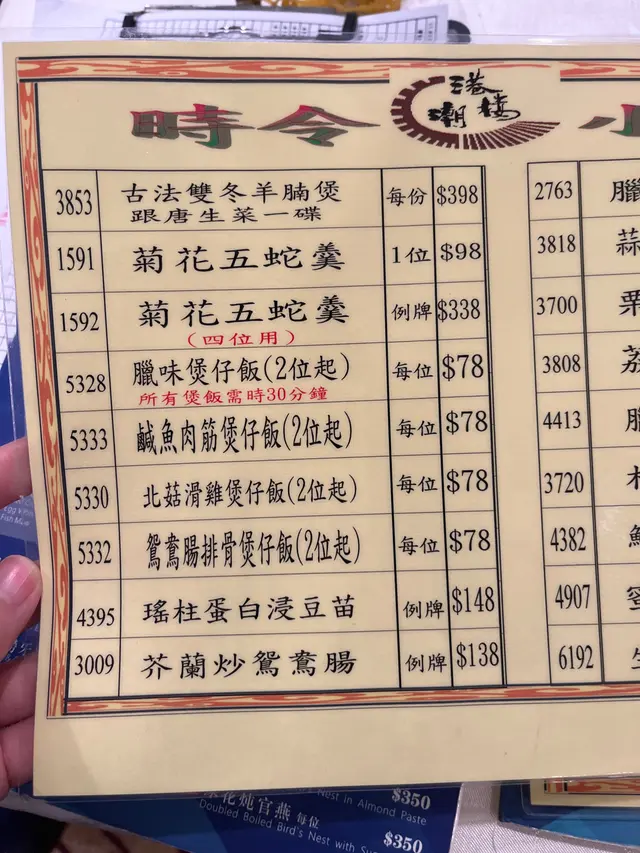 時令
港潮樓
3853 古法雙冬羊腩煲 每份 $398
跟唐生菜一碟
1591 菊花五蛇羹 1位 $98
1592 菊花五蛇羹 例牌 $338
(四位用)
5328 臘味煲仔飯(2位起) 每位 $78
所有煲飯需時30分鐘
5333 鹹魚肉筋煲仔飯(2位起) 每位 $78
5330 北菇滑雞煲仔飯(2位起) 每位 $78
5332 鴛鴦腸排骨煲仔飯(2位起) 每位 $78
4395 瑤柱蛋白浸豆苗 例牌 $148
3009 芥蘭炒鴛鴦腸 例牌 $138
小
2763 臘
3818 蒜
3700 栗
3808 荔
4413
3720
4382
4907
6192
Nest in Almond Paste $350
花炖官燕 每位
Doubled Boiled Bird's Nest with $350